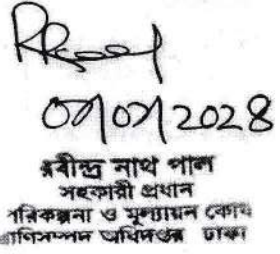 ০৭/০৭/2028
রবীন্দ্র নাথ পাল
সহকারী প্রধান
পরিকল্পনা ও মূল্যায়ন কোষ
প্রাণিসম্পদ অধিদপ্তর ঢাকা